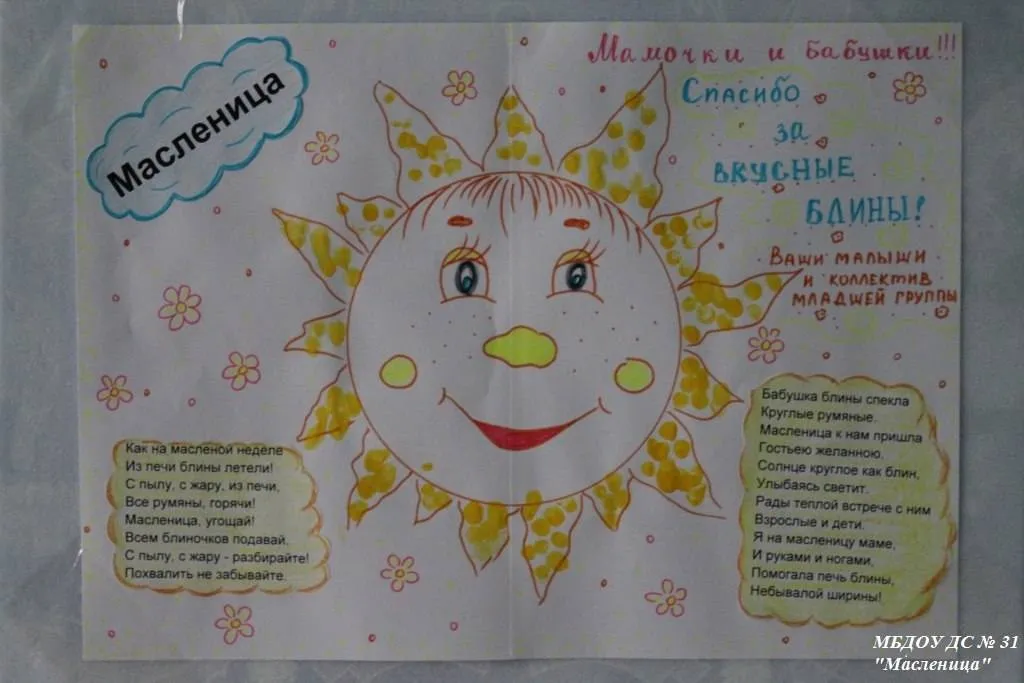 Масленица
Мамочки и бабушки!!!
Спасибо
за
вкусные
блины!
Ваши малыши
и коллектив
младшей группы
Как на масленой неделе
Из печи блины летели!
С пылу, с жару, из печи,
Все румяны, горячи!
Масленица, угощай!
Всем блиночков подавай.
С пылу, с жару - разбирайте!
Похвалить не забывайте.
Бабушка блины спекла
Круглые румяные.
Масленица к нам пришла
Гостьею желанною,
Солнце круглое как блин,
Улыбаясь светит.
Рады теплой встрече с ним
Взрослые и дети.
Я на масленицу маме,
И руками и ногами,
Помогала печь блины,
Небывалой ширины!
МБДОУ ДС № 31
"Масленица"